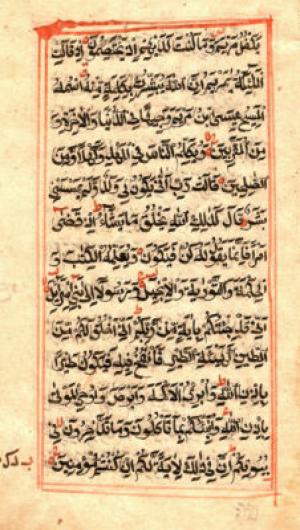 يكفل مريم وما كنت لديهم اذ يختصمون اذ قالت
الملئكة يمريم ان الله يبشرك بكلمة منه اسمه
المسيح عيسى بن مريم وجيها فى الدنيا والاخرة و
من المقربين ويكلم الناس فى المهد وكهلا ومن
الصلحين قالت رب انى يكون لى ولد ولم يمسسنى
بشر قال كذلك الله يخلق ما يشاء اذا قضى
امرا فانما يقول له كن فيكون ويعلمه الكتب و
الحكمة والتورية والانجيل ورسولا الى بنى اسرائيل
انى قد جئتكم باية من ربكم انى اخلق لكم من
الطين كهيئة الطير فانفخ فيه فيكون طيرا
باذن الله وابرئ الاكمه والابرص واحى الموتى
باذن الله وانبئكم بما تاكلون وما تدخرون فى
بيوتكم ان فى ذلك لاية لكم ان كنتم مؤمنين